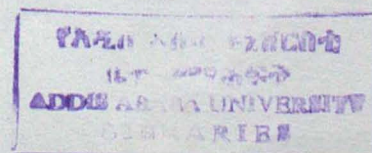 የአዲስ አበባ ዩኒቨርስቲ
ADDIS ABABA UNIVERSITY
LIBRARIES